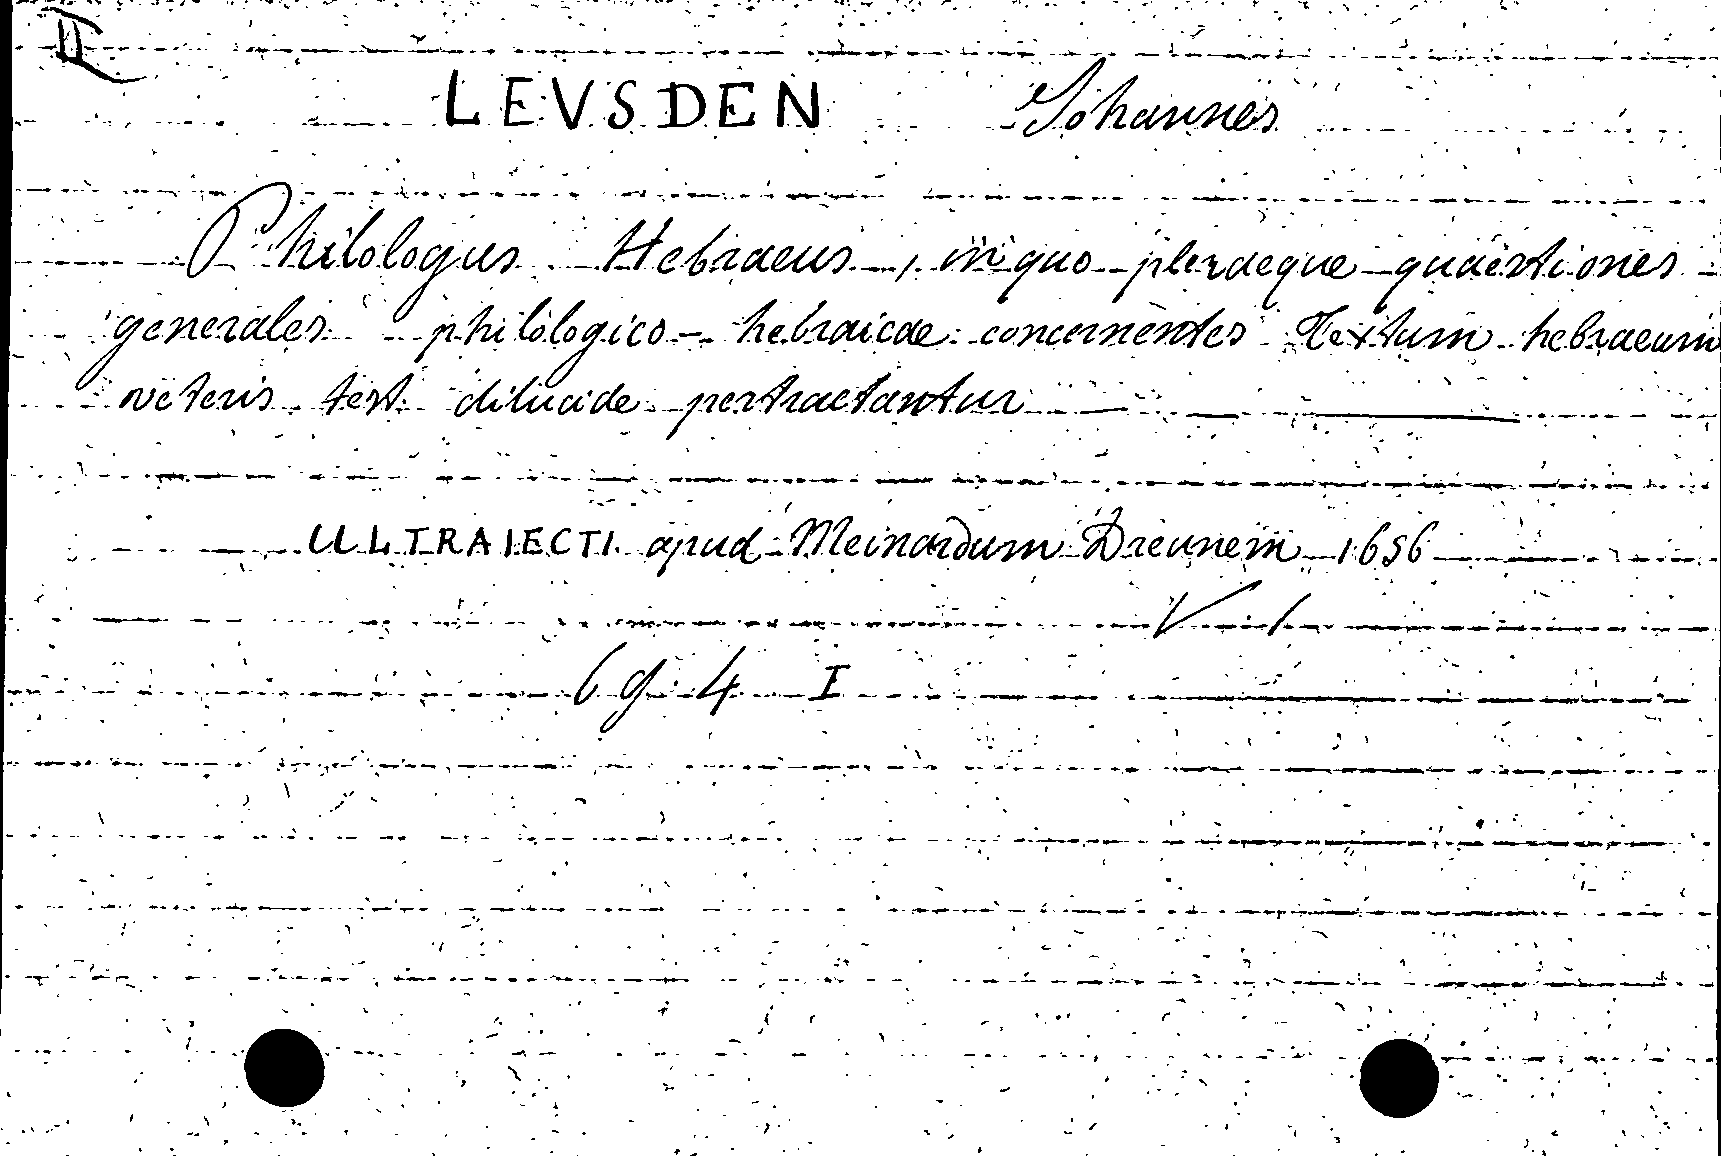 II
LEVSDEN Johannes
Philologus Hebraeus, in quo pleraeque quaestiones
generales philologico - hebraicae concernentes Textum hebraeum
veteris test. dilucide pertractantur
ULTRAIECTI apud Meinardum Dreunem 1656
6 g 4 I